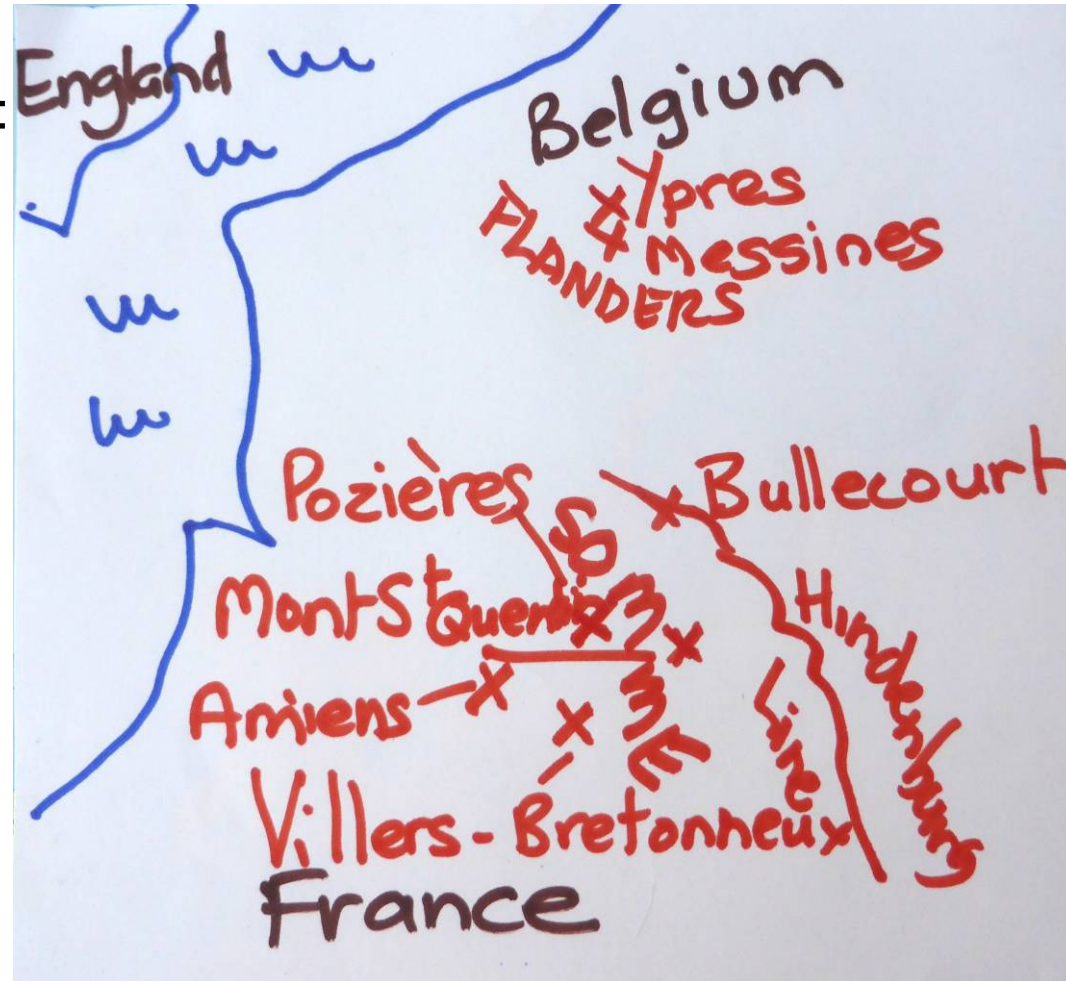 England
Belgium
Ypres
Messines
FLANDERS
Pozières
Bullecourt
SOMME
Mont St Quentin
Hindenburg
Line
Amiens
Villers-Bretonneux
France